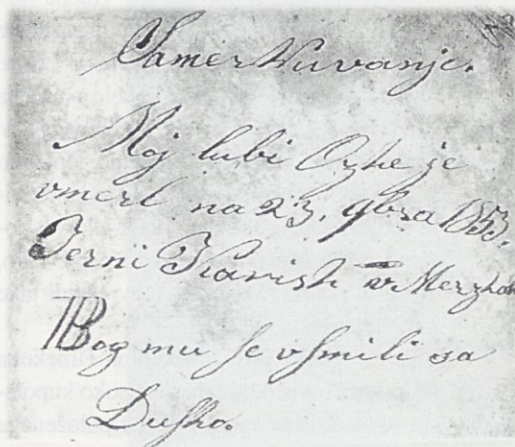 SamerKuvanje.
Moj lubi Ozhe je
vmerl na 23. 9bra 1853.
Jerni v
Bog mu ſe vſmili sa
Duſho.